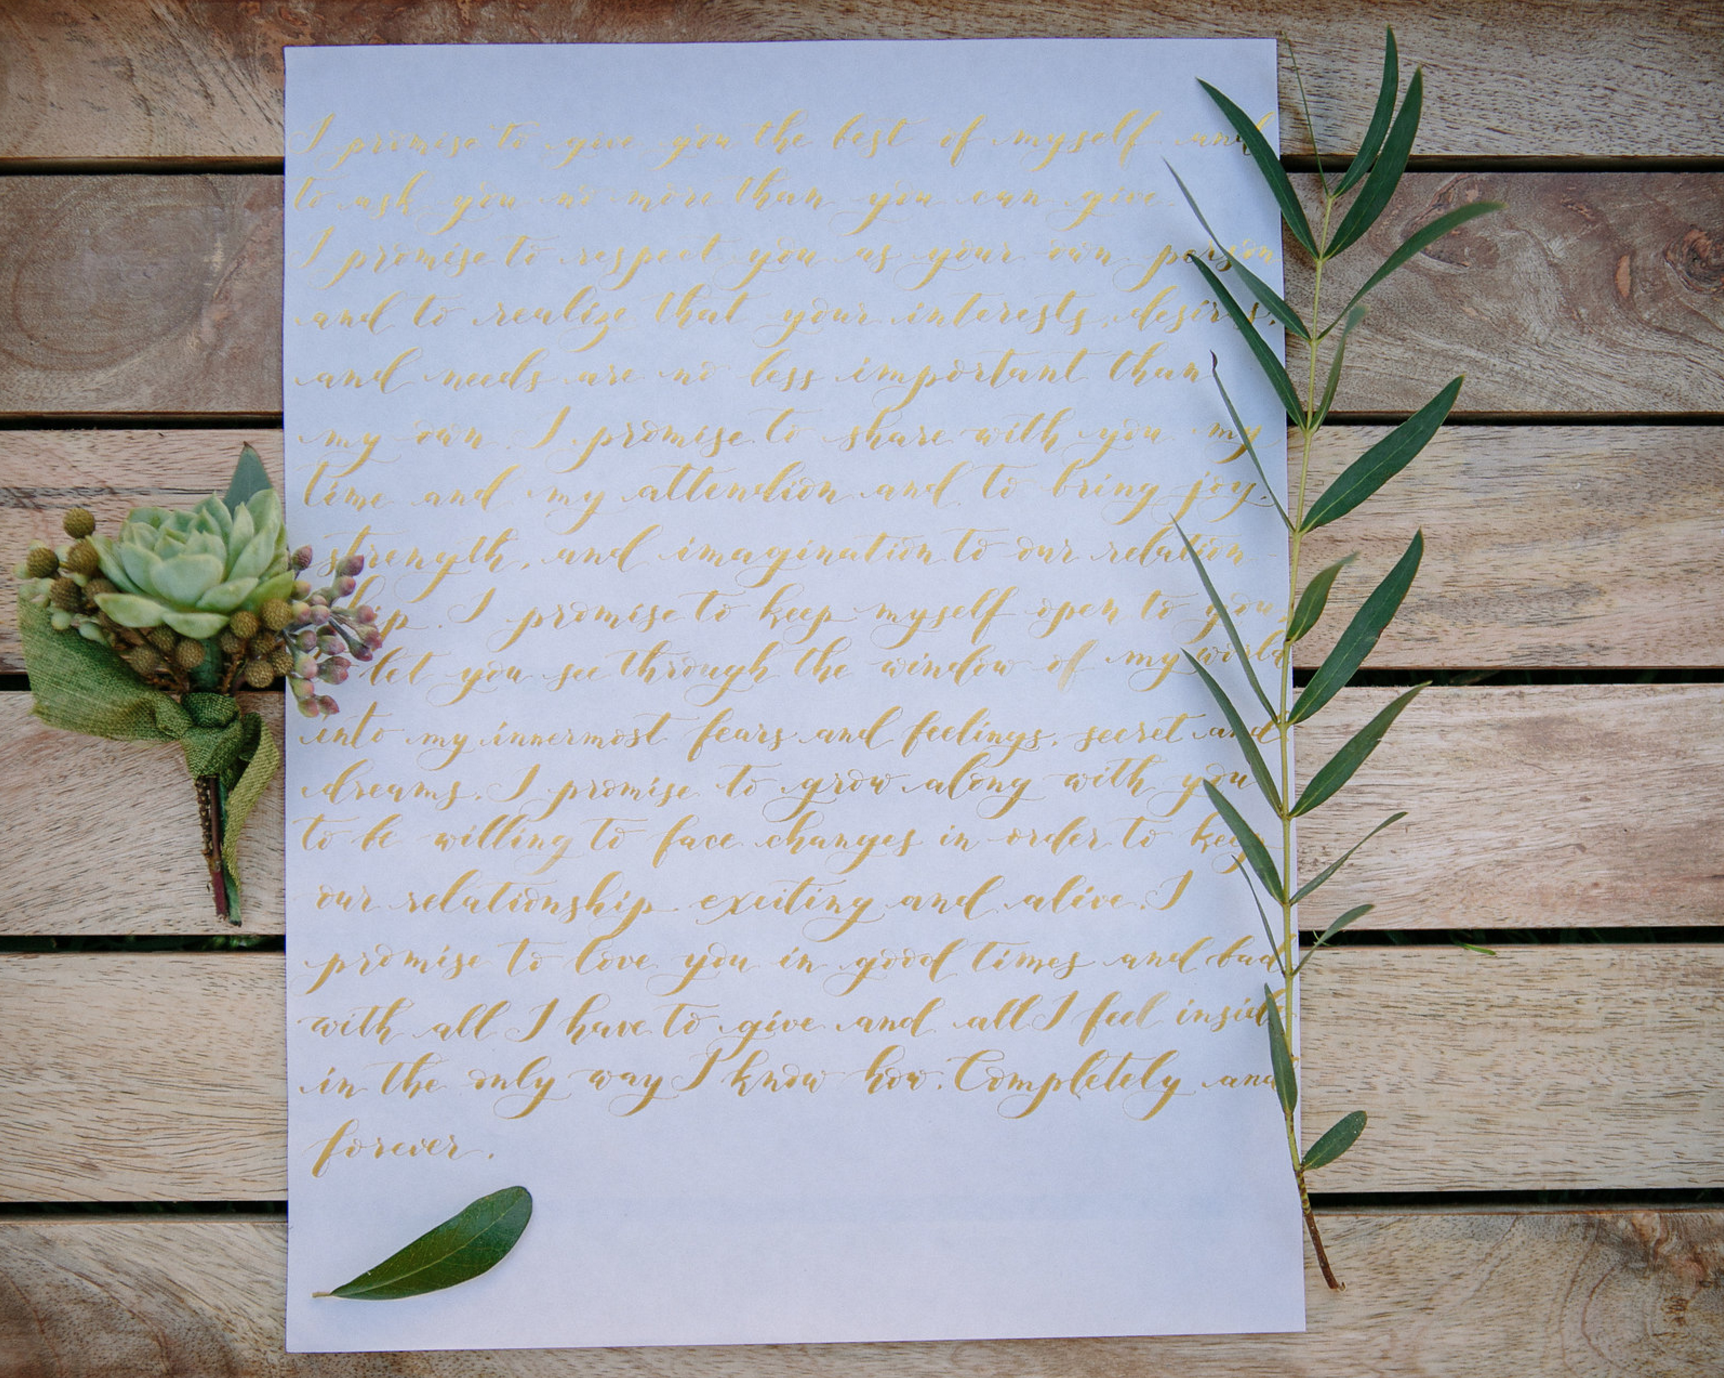 I promise to give you the best of myself and
to ask you no more than you can give.
I promise to respect you as your own person
and to realize that your interests, desires,
and needs are no less important than
my own. I promise to share with you my
time and my attention and to bring joy,
strength, and imagination to our relation
ip. I promise to keep myself open to you,
let you see through the window of my world
into my innermost fears and feelings, secret and
dreams. I promise to grow along with you
to be willing to face changes in order to keep
our relationship exciting and alive. I
promise to love you in good times and bad
with all I have to give and all I feel inside
in the only way I know how. Completely and
forever.